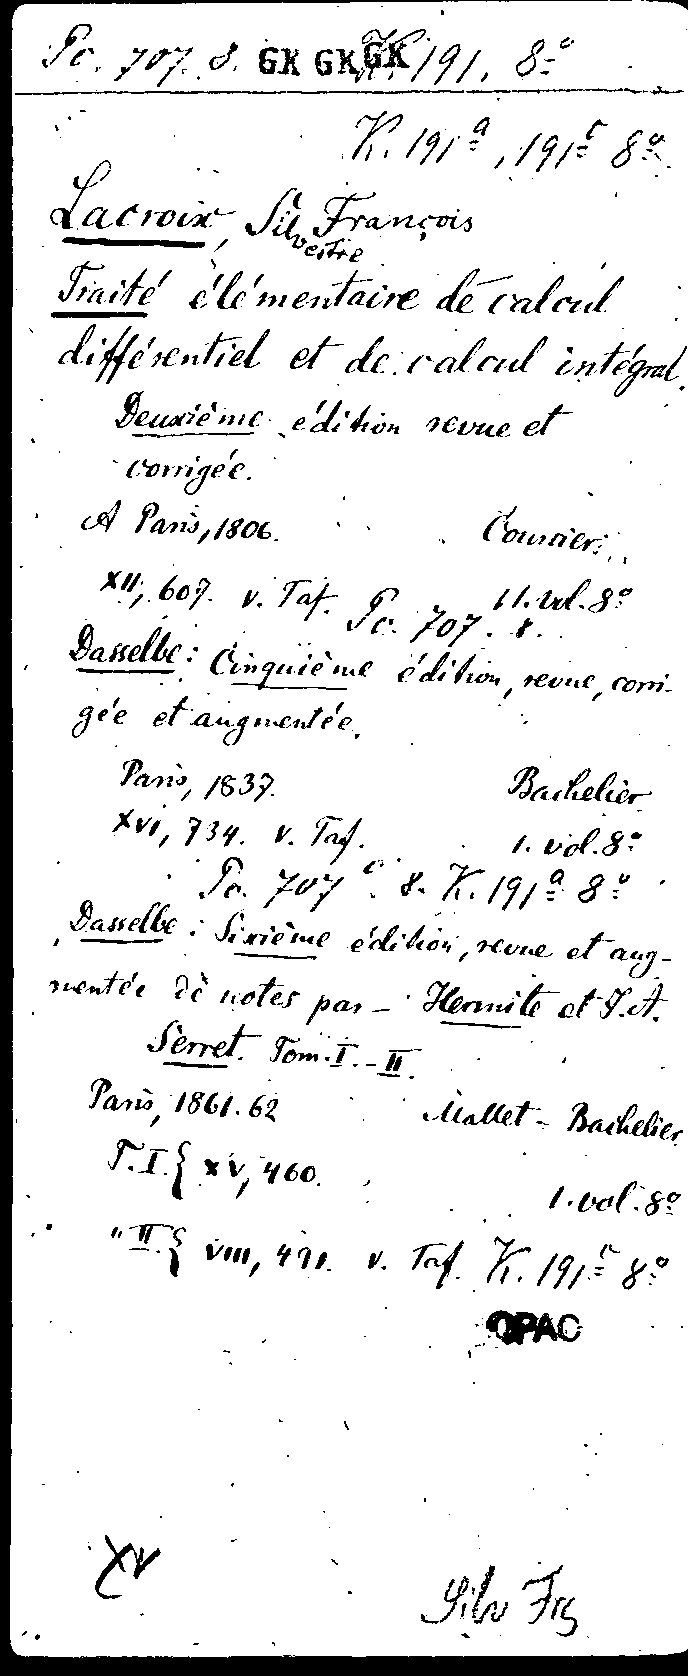 Pc. 707. 8. GK GK GK K. 191. 8º
K. 191ª, 191ᶜ 8º
Lacroix, Silvestre François
Traité élémentaire de calcul
différentiel et de calcul intégral.
Deuxième édition revue et
corrigée.
A Paris, 1806. Courcier.
XII, 607. v. Taf. 11. vol. 8º
Pc. 707. 8.
Dasselbe: Cinquième édition, revue, corri-
gée et augmentée.
Paris, 1837. Bachelier.
XVI, 734. v. Taf. 1. vol. 8º
Pc. 707ᶜ. 8. K. 191ª 8º
Dasselbe: Sixième édition, revue et aug-
mentée de notes par - Hermite et J. A.
Serret. Tom. I. - II.
Paris, 1861.62 Mallet-Bachelier
T. I. { XV, 460.
1. vol. 8º
" II. { VIII, 491. v. Taf. K. 191ᶜ 8º
OPAC
XV
Silv Frç